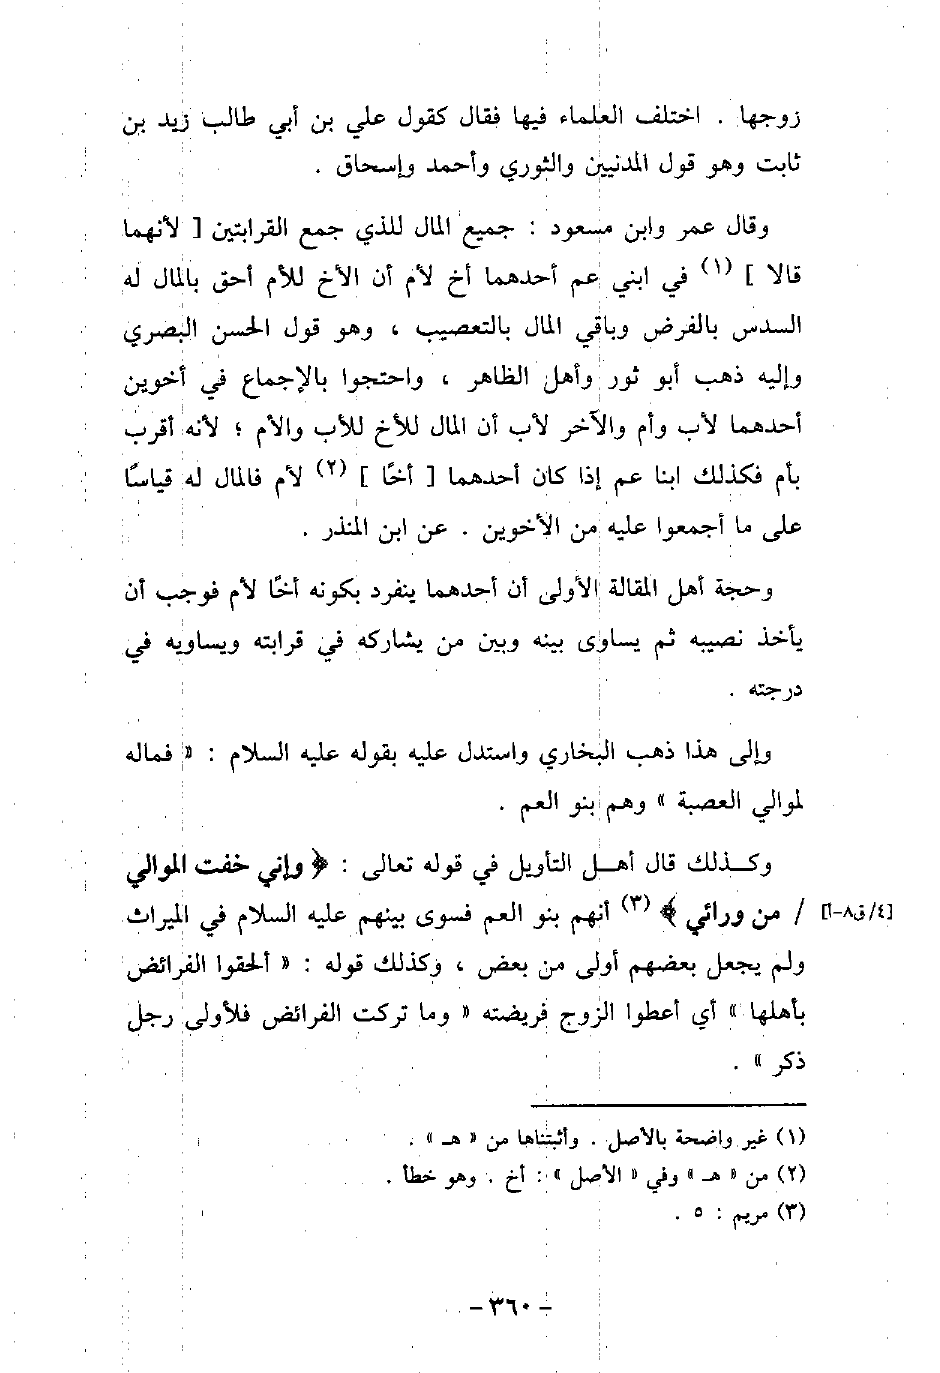 زوجها . اختلف العلماء فيها فقال كقول علي بن أبي طالب زيد بن
ثابت وهو قول المدنيين والثوري وأحمد وإسحاق .
وقال عمر وابن مسعود : جميع المال للذي جمع القرابتين [ لأنهما
قالا ] (١) في ابني عم أحدهما أخ لأم أن الأخ للأم أحق بالمال له
السدس بالفرض وباقي المال بالتعصيب ، وهو قول الحسن البصري
وإليه ذهب أبو ثور وأهل الظاهر ، واحتجوا بالإجماع في أخوين
أحدهما لأب وأم والآخر لأب أن المال للأخ للأب والأم ؛ لأنه أقرب
بأم فكذلك ابنا عم إذا كان أحدهما [ أخًا ] (٢) لأم فالمال له قياسًا
على ما أجمعوا عليه من الأخوين . عن ابن المنذر .
وحجة أهل المقالة الأولى أن أحدهما ينفرد بكونه أخًا لأم فوجب أن
يأخذ نصيبه ثم يساوى بينه وبين من يشاركه في قرابته ويساويه في
درجته .
وإلى هذا ذهب البخاري واستدل عليه بقوله عليه السلام : « فماله
لموالي العصبة » وهم بنو العم .
وكذلك قال أهل التأويل في قوله تعالى : ﴿ وإني خفت الموالي
[٤/ق٨-أ] / من ورائي ﴾ (٣) أنهم بنو العم فسوى بينهم عليه السلام في الميراث
ولم يجعل بعضهم أولى من بعض ، وكذلك قوله : « ألحقوا الفرائض
بأهلها » أي أعطوا الزوج فريضته « وما تركت الفرائض فلأولى رجل
ذكر » .
(١) غير واضحة بالأصل . وأثبتناها من « هـ » .
(٢) من « هـ » وفي « الأصل » : أخ . وهو خطأ .
(٣) مريم : ٥ .
- ٣٦٠ -